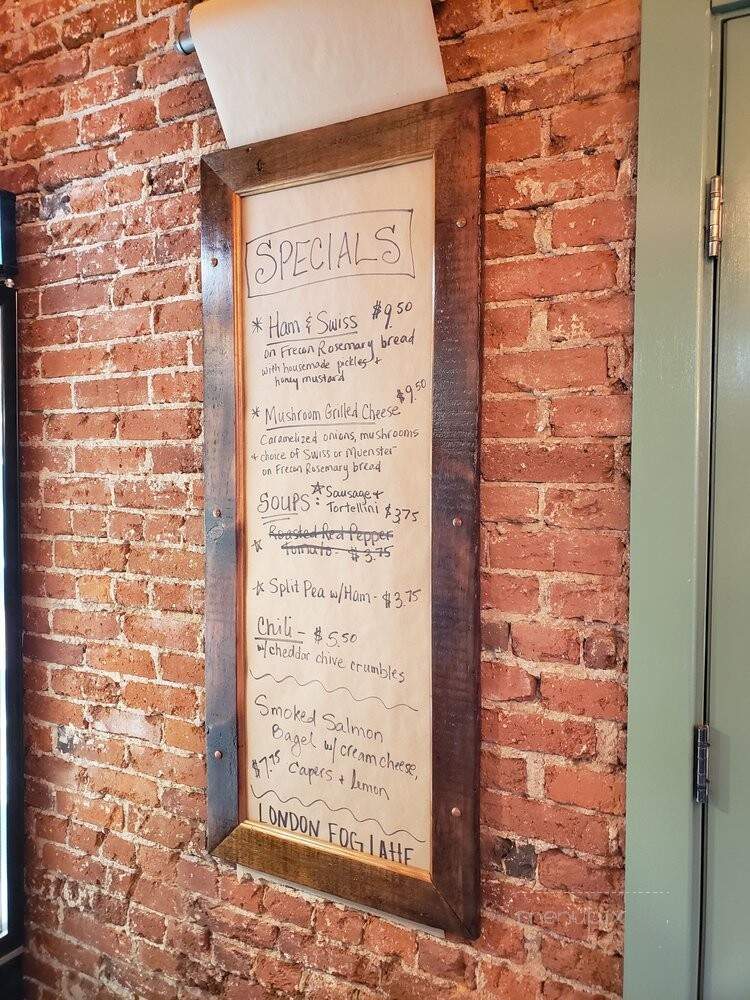 SPECIALS
* Ham & Swiss $9.50
on Frecon Rosemary bread
with housemade pickles +
honey mustard
$9.50
* Mushroom Grilled Cheese
Caramelized onions, mushrooms
+ choice of Swiss or Muenster
on Frecon Rosemary bread
SOUPS: ☆ Sausage +
Tortellini $3.75
☆ Roasted Red Pepper
Tomato - $3.75
☆ Split Pea w/Ham - $3.75
Chili - $5.50
w/cheddar chive crumbles
Smoked Salmon
Bagel w/ creamcheese,
$7.75 Capers + lemon
LONDON FOG LATTE
menupix